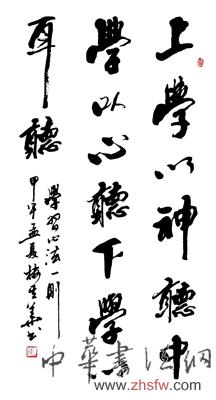 上學以神聽中
學以心聽下學以
耳聽
學習心法一則
甲午孟夏梅生美书
中華書法網
www.zhsfw.com